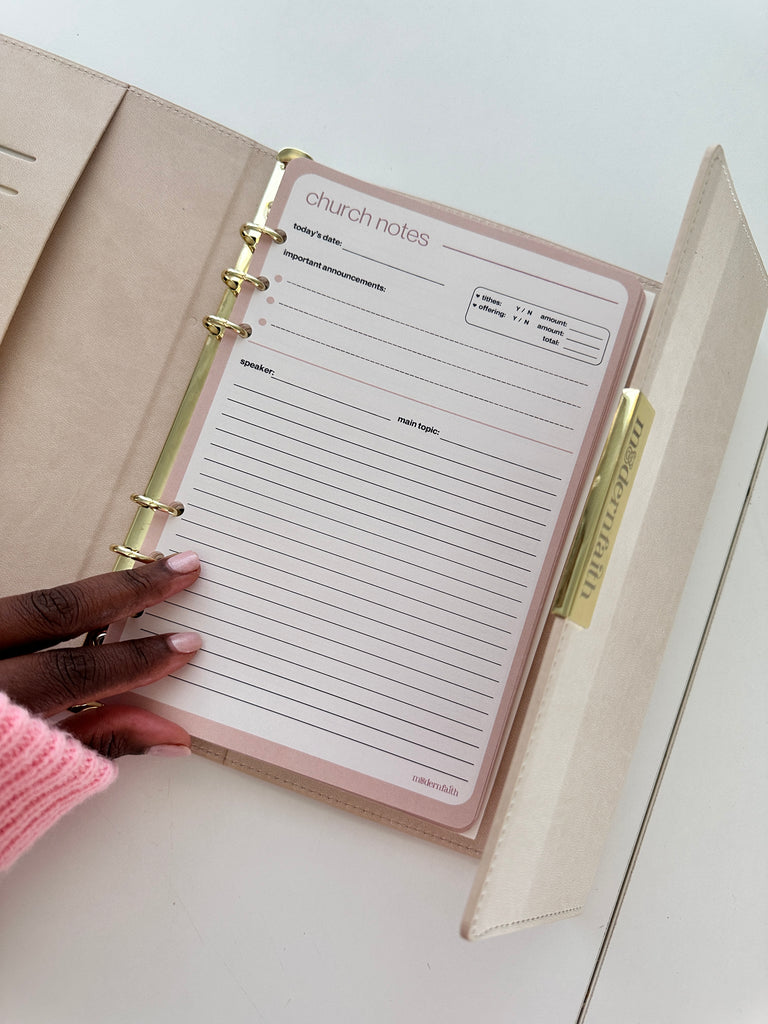 church notes
today's date:
important announcements:
♥ tithes: Y / N amount:
♥ offering: Y / N amount:
total:
speaker:
main topic:
modernfaith
modernfaith